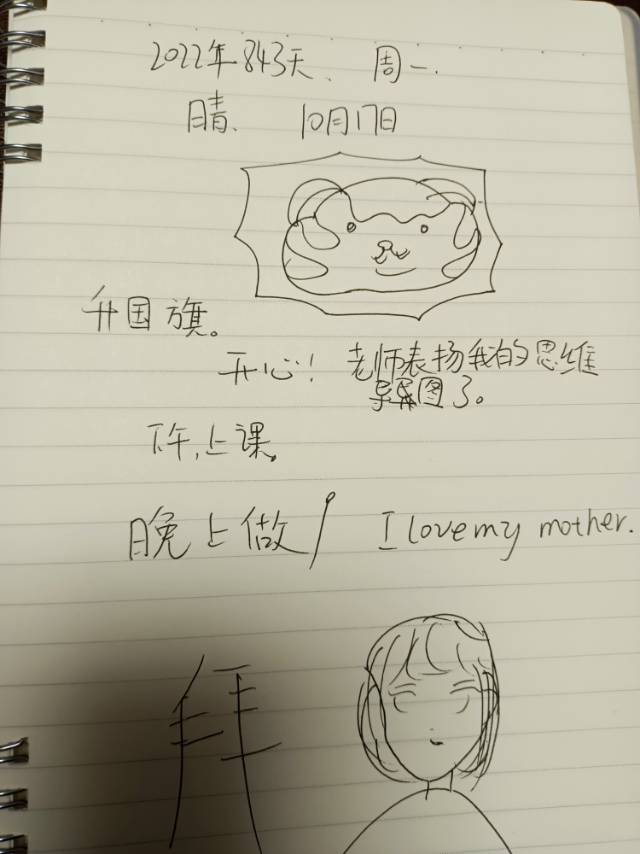 2022年843天、周一.
晴、 10月17日
升国旗。
开心！老师表扬我的思维
导图了。
下午，上课。
晚上做 I love my mother.
拜